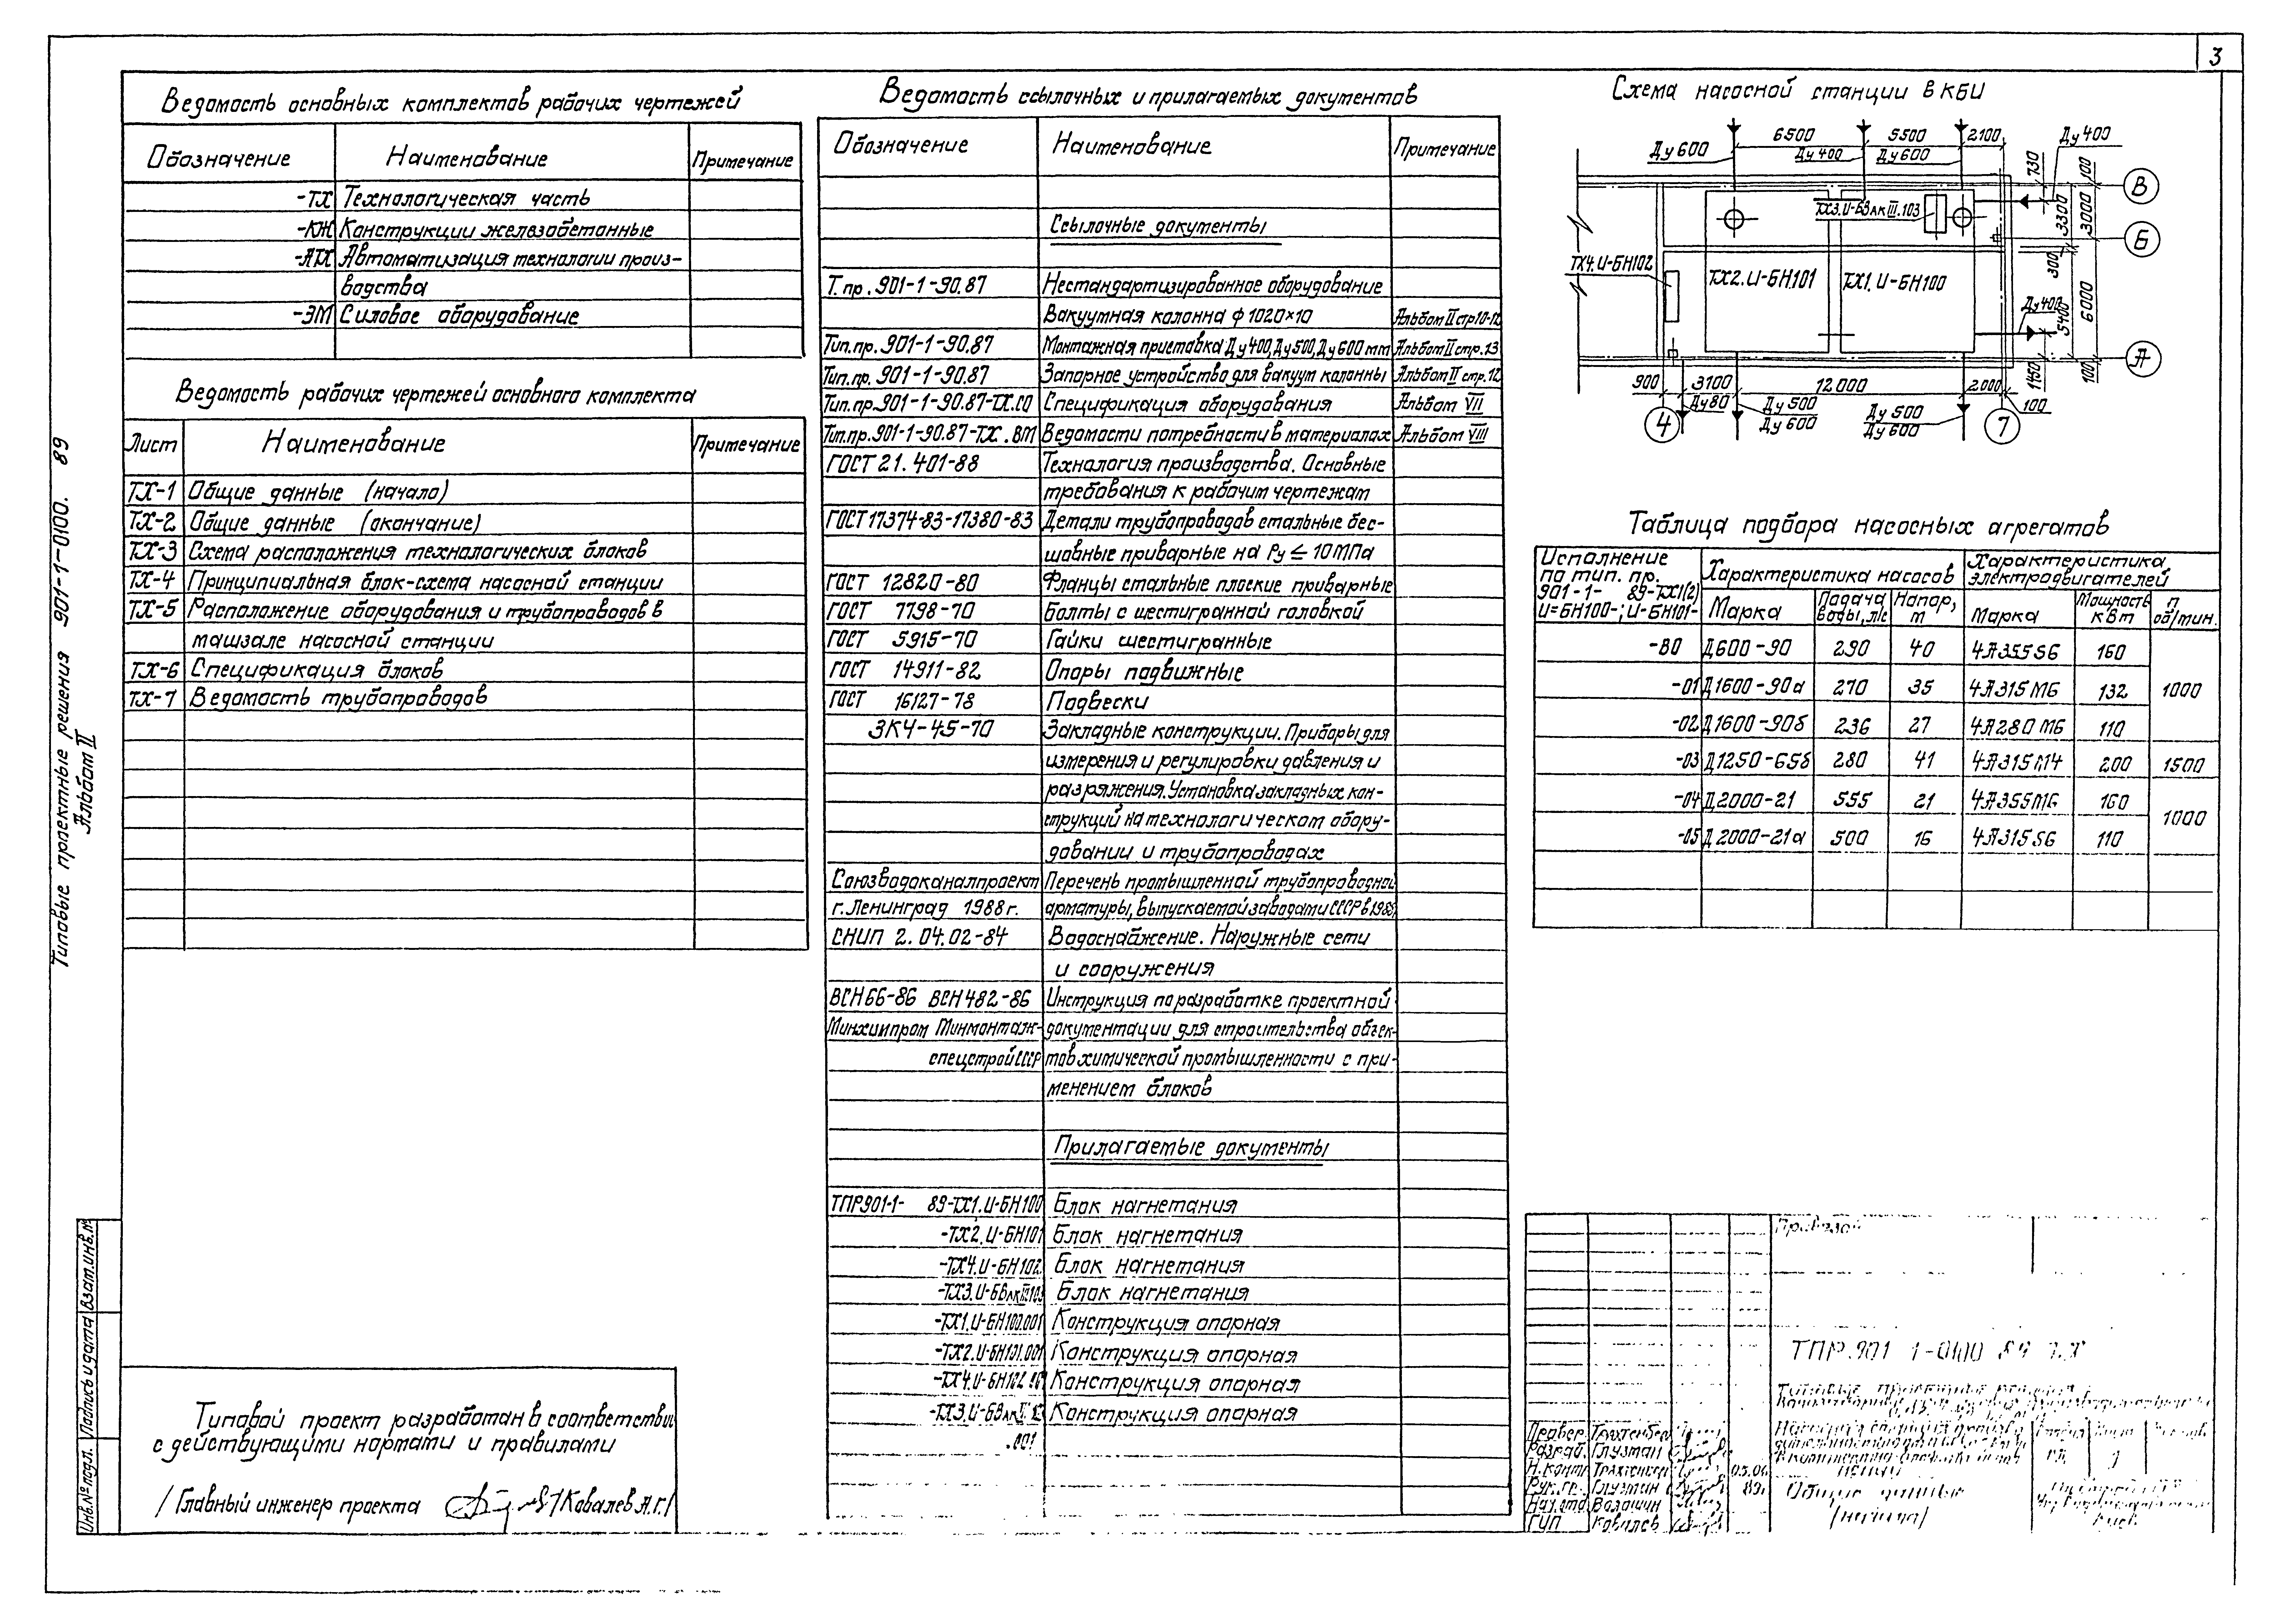 3
Ведомость основных комплектов рабочих чертежей
Обозначение Наименование Примечание
-ТХ Технологическая часть
-КЖ Конструкции железобетонные
-АТХ Автоматизация технологии произ-
водства
-ЭМ Силовое оборудование
Ведомость рабочих чертежей основного комплекта
Лист Наименование Примечание
ТХ-1 Общие данные (начало)
ТХ-2 Общие данные (окончание)
ТХ-3 Схема расположения технологических блоков
ТХ-4 Принципиальная блок-схема насосной станции
ТХ-5 Расположение оборудования и трубопроводов в
машзале насосной станции
ТХ-6 Спецификация блоков
ТХ-7 Ведомость трубопроводов
Типовые проектные решения 901-1-0100. 89
Альбом II
Инв.№ подл. Подпись и дата Взам.инв.№
Типовой проект разработан в соответствии
с действующими нормами и правилами
/Главный инженер проекта /Ковалев А.Г./
Ведомость ссылочных и прилагаемых документов
Обозначение Наименование Примечание
Ссылочные документы
Т.пр. 901-1-90.87 Нестандартизированное оборудование
Вакуумная колонна ф 1020×10 Альбом II стр10-12
Тип.пр. 901-1-90.87 Монтажная приставка Ду400, Ду500, Ду 600 мм Альбом II стр.13
Тип.пр. 901-1-90.87 Запорное устройство для вакуум колонны Альбом II стр.12
Тип.пр. 901-1-90.87-ТХ.СО Спецификация оборудования Альбом VII
Тип.пр. 901-1-90.87-ТХ.ВМ Ведомости потребности в материалах Альбом VIII
ГОСТ 21.401-88 Технология производства. Основные
требования к рабочим чертежам
ГОСТ 17374-83-17380-83 Детали трубопроводов стальные бес-
шовные приварные на Ру ≤ 10 МПа
ГОСТ 12820-80 Фланцы стальные плоские приварные
ГОСТ 7798-70 Болты с шестигранной головкой
ГОСТ 5915-70 Гайки шестигранные
ГОСТ 14911-82 Опоры подвижные
ГОСТ 16127-78 Подвески
ЗК4-45-70 Закладные конструкции. Приборы для
измерения и регулировки давления и
разряжения. Установка закладных кон-
струкций на технологическом обору-
довании и трубопроводах
Союзводоканалпроект Перечень промышленной трубопроводной
г. Ленинград 1988 г. арматуры, выпускаемой заводами СССР в
СНИП 2.04.02-84 Водоснабжение. Наружные сети
и сооружения
ВСН 66-86 ВСН 482-86 Инструкция по разработке проектной
Минхимпром Минмонтаж- документации для строительства объек-
спецстрой СССР тов химической промышленности с при-
менением блоков
Прилагаемые документы
ТПР901-1- 89-ТХ1.И-БН100 Блок нагнетания
-ТХ2.И-БН101 Блок нагнетания
-ТХ4.И-БН102 Блок нагнетания
-ТХ3.И-БВлкIII.103 Блок нагнетания
-ТХ1.И-БН100.001 Конструкция опорная
-ТХ2.И-БН101.001 Конструкция опорная
Конструкция опорная
Конструкция опорная
.001
Схема насосной станции в КБИ
Ду 600 6500 5500 2100 Ду 400
Ду 400 Ду 600
730 100
В
ТХ3.И-БВлк III.103
3300 3000
Б
ТХ4.И-БН102
ТХ2.И-БН101 ТХ1.И-БН100
300
Ду 400
5400 6000
А
1450 100
900 3100 12 000 2000 100
Ду 80 Ду 500 Ду 500
Ду 600 Ду 600
4 7
Таблица подбора насосных агрегатов
Исполнение по тип. пр. 901-1- 89-ТХ1(2) И-БН100-; И-БН101- Характеристика насосов Характеристика электродвигателей
Марка Подача воды, л/с Напор, м Марка Мощность кВт п об/мин.
-80 Д600-90 290 40 4А355S6 160
-01 Д1600-90а 270 35 4А315М6 132 1000
-02 Д1600-90б 236 27 4А280М6 110
-03 Д1250-65б 280 41 4А315М4 200 1500
-04 Д2000-21 555 21 4А355М6 160
1000
-05 Д2000-21а 500 16 4А315S6 110
Привязан
ТПР.901 1-0100 89 ТХ
Провер. Трахтенберг
Разраб. Глузман
Н.контр. Трахтенберг
Рук.гр. Глузман 89
Нач.отд
ГИП Ковалев
Общие данные
(начало)
Киев